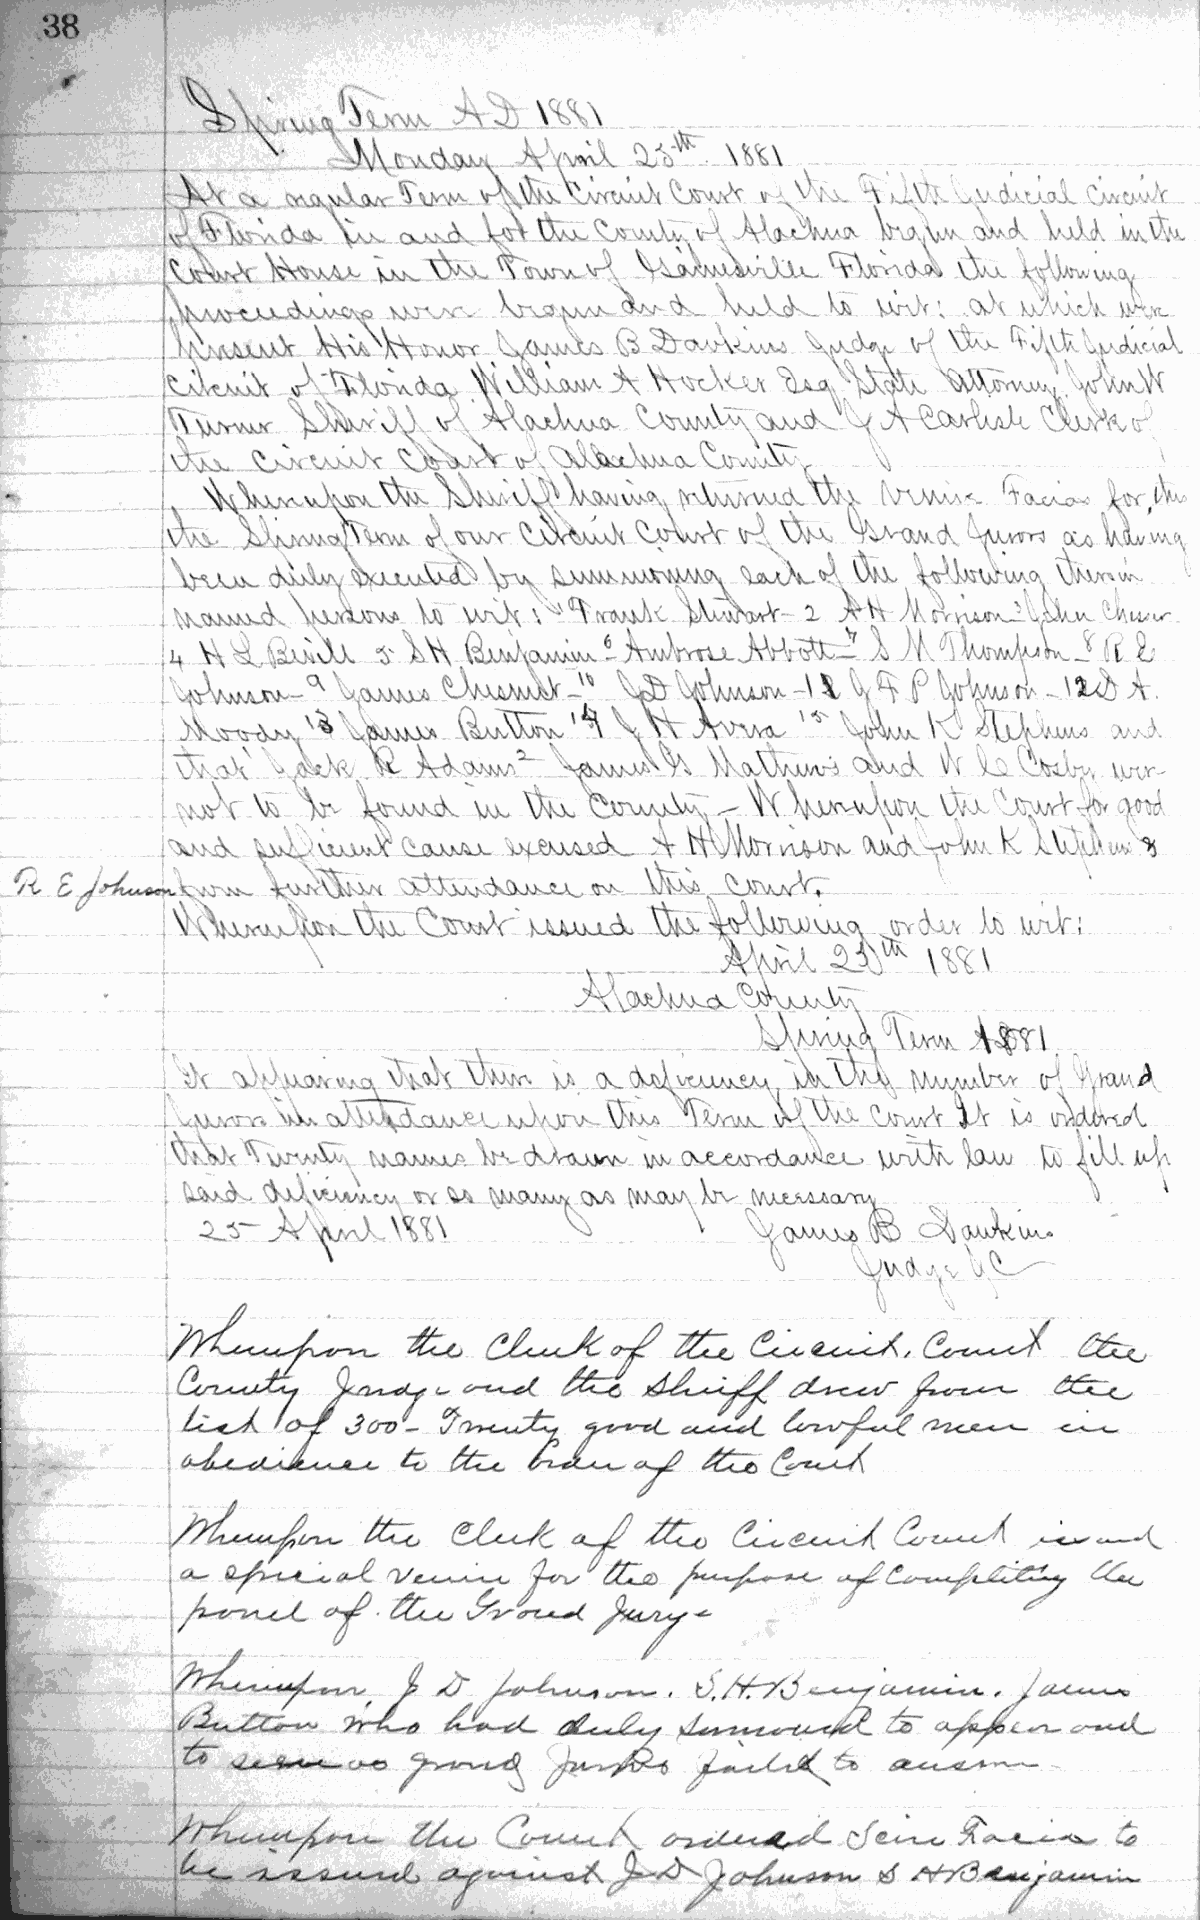 38
Spring Term A D 1881
Monday April 25th 1881
At a regular Term of the Circuit Court of the Fifth Judicial Circuit
of Florida in and for the County of Alachua begun and held in the
Court House in the Town of Gainesville Florida the following
proceedings were begun and held to wit: at which were
present His Honor James B Dawkins Judge of the Fifth Judicial
Circuit of Florida William A Hocker Esq State Attorney John W
Turner Sheriff of Alachua County and J A Carlisle Clerk of
the Circuit Court of Alachua County
Whereupon the Sheriff having returned the Venire Facias for this
the Spring Term of our Circuit Court of the Grand Jurors as having
been duly executed by summoning each of the following therein
named persons to wit: 1 Frank Stewart - 2 A H Morrison - 3 John Cheser
4 H L Bevill 5 S H Benjamin - 6 Ambrose Abbott - 7 S M Thompson - 8 R E
Johnson - 9 James Chesnut - 10 J D Johnson - 11 J F P Johnson - 12 D A.
Moody 13 James Button 14 J H Avera 15 John K Stephens and
that Jack R Adams 2 James G Mathews and W C Cosby were
not to be found in the County - Whereupon the Court for good
and sufficient cause excused A H Morrison and John K Stephens &
R E Johnson from further attendance on this court.
Whereupon the Court issued the following order to wit:
April 25th 1881
Alachua County
Spring Term 1881
It appearing that there is a deficiency in the number of Grand
Jurors in attendance upon this Term of the Court It is ordered
that Twenty names be drawn in accordance with law to fill up
said deficiency or so many as may be necessary
25 April 1881 James B Dawkins
Judge
Whereupon the Clerk of the Circuit Court the
County Judge and the Sheriff drew from the
list of 300 - Twenty good and lawful men in
obedience to the Order of the Court
Whereupon the Clerk of the Circuit Court issued
a special venire for the purpose of Completing the
panel of the Grand Jury -
Whereupon, J D Johnson. S. H. Benjamin. James
Button who had duly summoned to appear and
to serve as grand Jurors failed to answer
Whereupon the Court ordered Scire Facias to
be issued against J D Johnson S H Benjamin